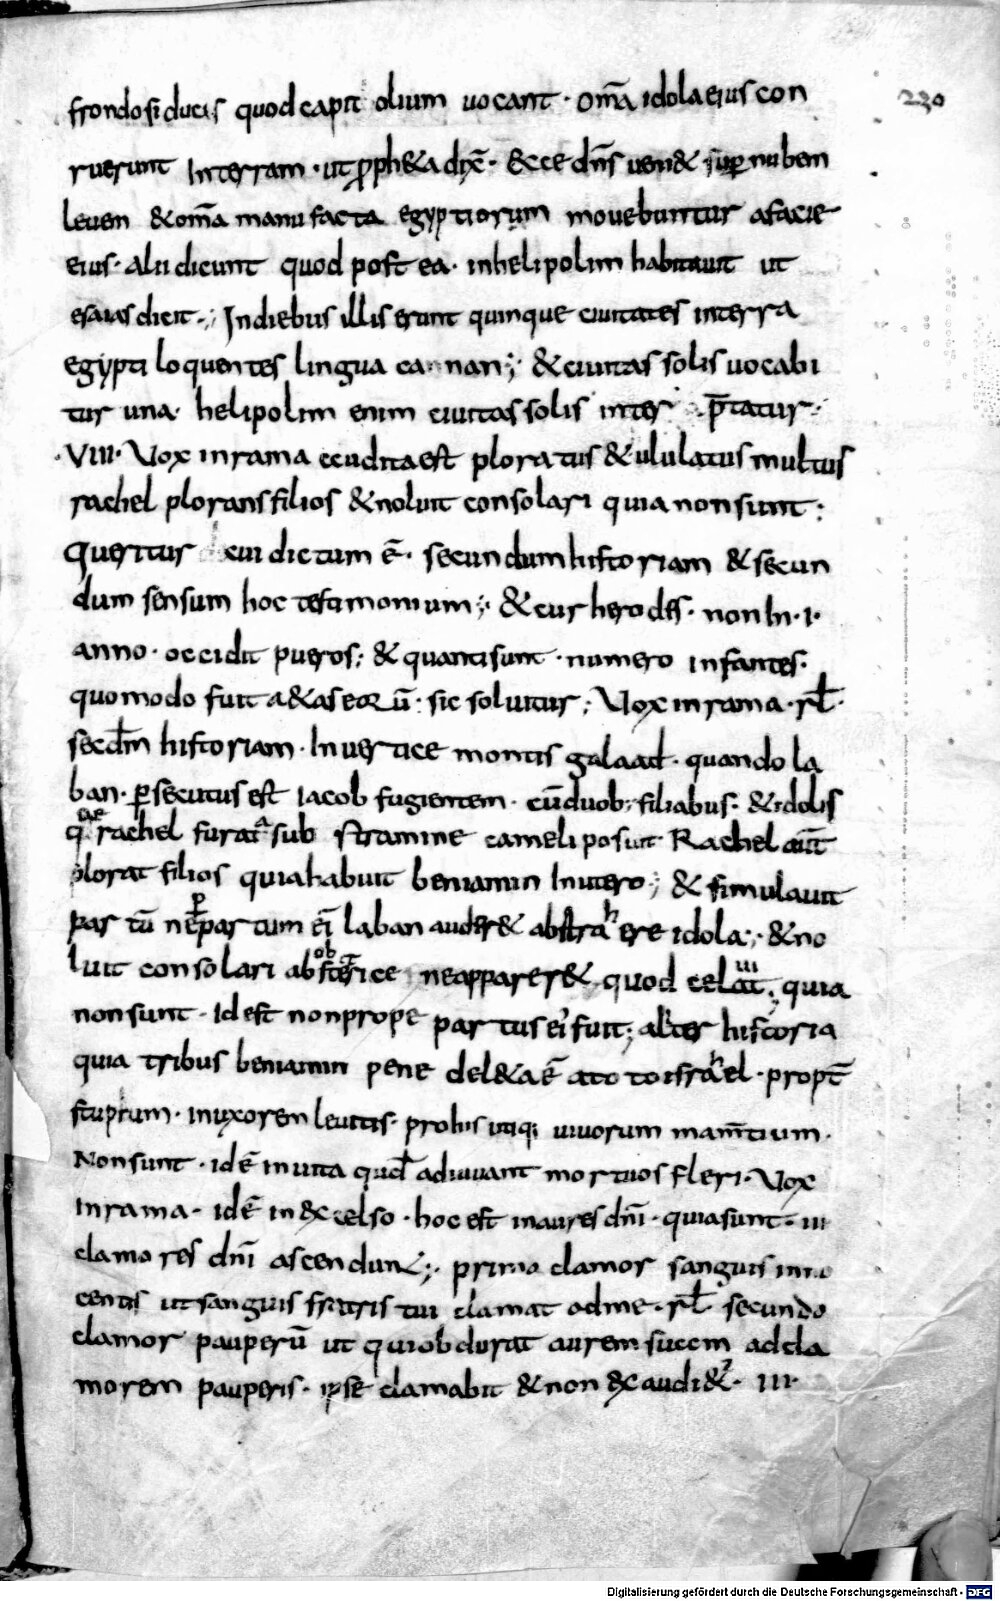 frondosi ducis quod capit olium uocant · om̄a idola eius con
230
ruerunt In terram · ut ꝓph&a dix̄ · & ecce dn̄s ueni& suꝑ nubem
leuem & om̄a manu facta egyptiorum mouebuntur a facie
eius · alii dicunt quod post ea · in helipolim habitauit ut
esaias dicit · ; In diebus illis erunt quinque ciuitates in terra
egypti loquentes lingua cannan ; & ciuitas solis uocabi
tur una · helipolim enim ciuitas solis inter p̄tatur ·
· VIII · Vox in rama audita est ploratus & ululatus multus
rachel plorans filios & noluit consolari quia non sunt :
Queritur cui dictum ē · secundum historiam & secun
dum sensum hoc testimonium ; & cur herodes · non In · I ·
anno · occidit pueros ; & quanti sunt · numero infantes ·
quomodo fuit a&as eorū · sic soluitur ; Vox in rama · rl̄ ·
secdm̄ historiam · In uertice montis galaad · quando la
ban · ꝑsecutus est iacob fugientem · cū duob; filiabus · & idolis
quae rachel furat᷑ sub stramine cameli posuit Rachel aūt
plorat filios quia habuit beniamin In utero ; & simulauit
par tū ne ꝑ partum ei laban auderet abstrahere idola ; & no
luit consolari ab obstetrice ne apparer& quod celauit ; quia
non sunt · Id est non prope partus ei fuit ; alit̄er historia
quia tribus beniamin pene del&a ē a toto israhel · propt̄
stuprum · in uxorem leuitis · probus utiq; uiuorum
Non sunt · id ē in uita quod adiuuant mortuos fleri · Vox
In rama · id ē in excelso · hoc est in aures dn̄i · quia sunt · III
clamores dn̄i ascendunt ; · primo clamor sanguis inno
centis ut sanguis fratris tui clamat ad me · rl̄ secundo
clamor pauperū ut qui obdurat aurem suam ad cla
morem pauperis · ipse clamabit & non exaudi&᷑ · III ·
Digitalisierung gefördert durch die Deutsche Forschungsgemeinschaft · DFG